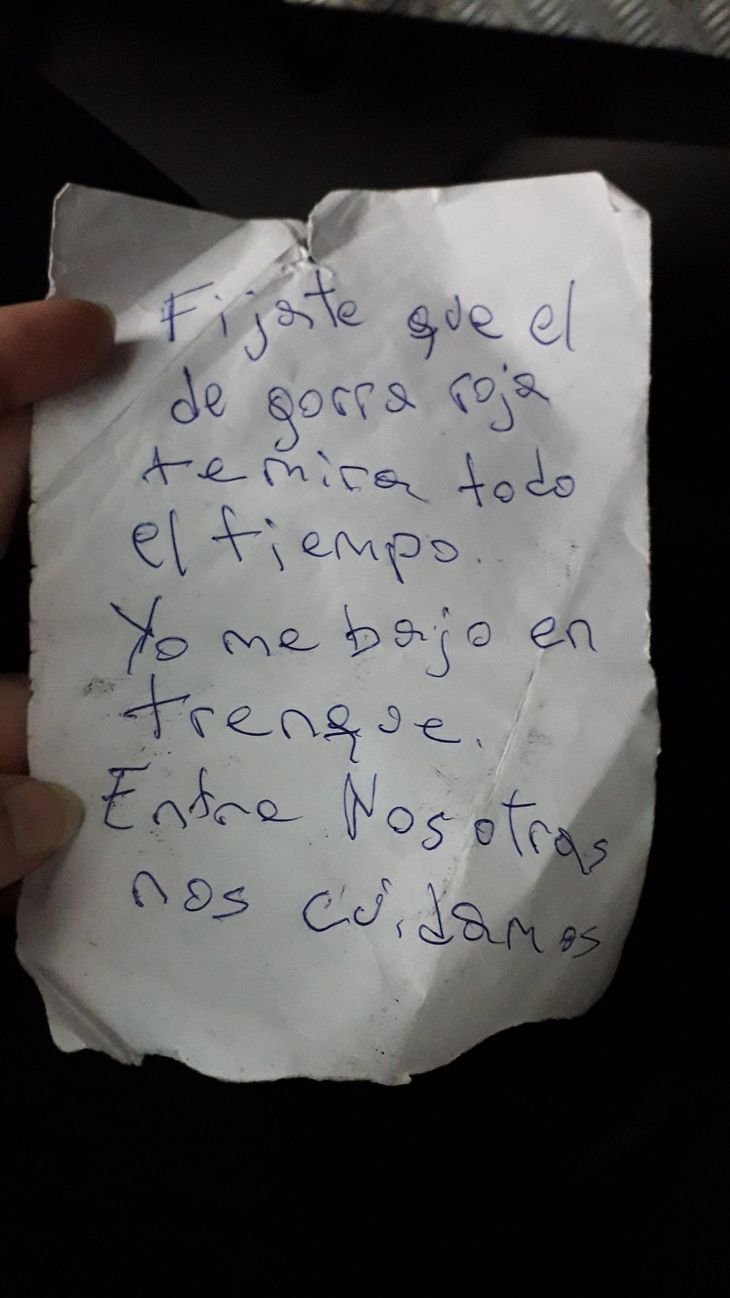 Fijate que el
de gorra roja
te mira todo
el tiempo.
Yo me bajo en
trenque.
Entre Nosotras
nos cuidamos